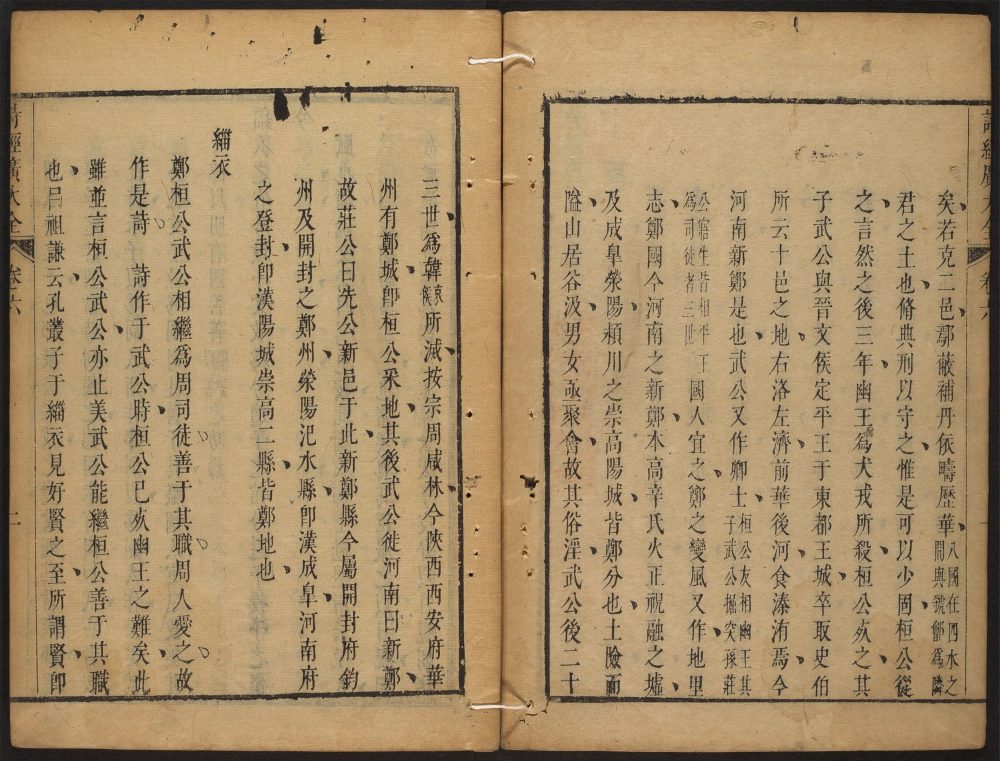 詩經廣大全
卷六
矣若克二邑鄢蔽補丹依疇歷華八國在四水之間與虢鄶為隣
君之土也脩典刑以守之惟是可以少固桓公從
之言然之後三年幽王為犬戎所殺桓公死之其
子武公與晉文侯定平王于東都王城卒取史伯
所云十邑之地右洛左濟前華後河食溱洧焉今
河南新鄭是也武公又作卿士桓公友相幽王其子武公掘突孫莊
公寤生皆相平王為司徒者三世國人宜之鄭之變風又作地里
志鄭國今河南之新鄭本高辛氏火正祝融之墟
及成皐滎陽頴川之崇高陽城皆鄭分也土險而
隘山居谷汲男女亟聚會故其俗淫武公後二十
三世為韓哀侯所滅按宗周咸林今陝西西安府華
州有鄭城卽桓公采地其後武公徙河南曰新鄭
故莊公曰先公新邑于此新鄭縣今屬開封府鈞
州及開封之鄭州滎陽汜水縣卽漢成皐河南府
之登封卽漢陽城崇高二縣皆鄭地也
緇衣
鄭桓公武公相繼為周司徒善于其職周人愛之故
作是詩　詩作于武公時桓公已死幽王之難矣此
雖並言桓公武公亦止美武公能繼桓公善于其職
也呂祖謙云孔叢子于緇衣見好賢之至所謂賢卽
詩經廣大全
卷六
二